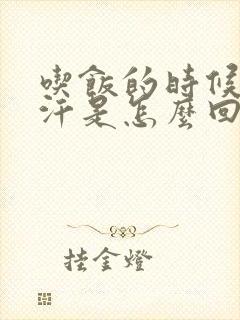 喫飯的時候
汗是怎麼回
挂金燈